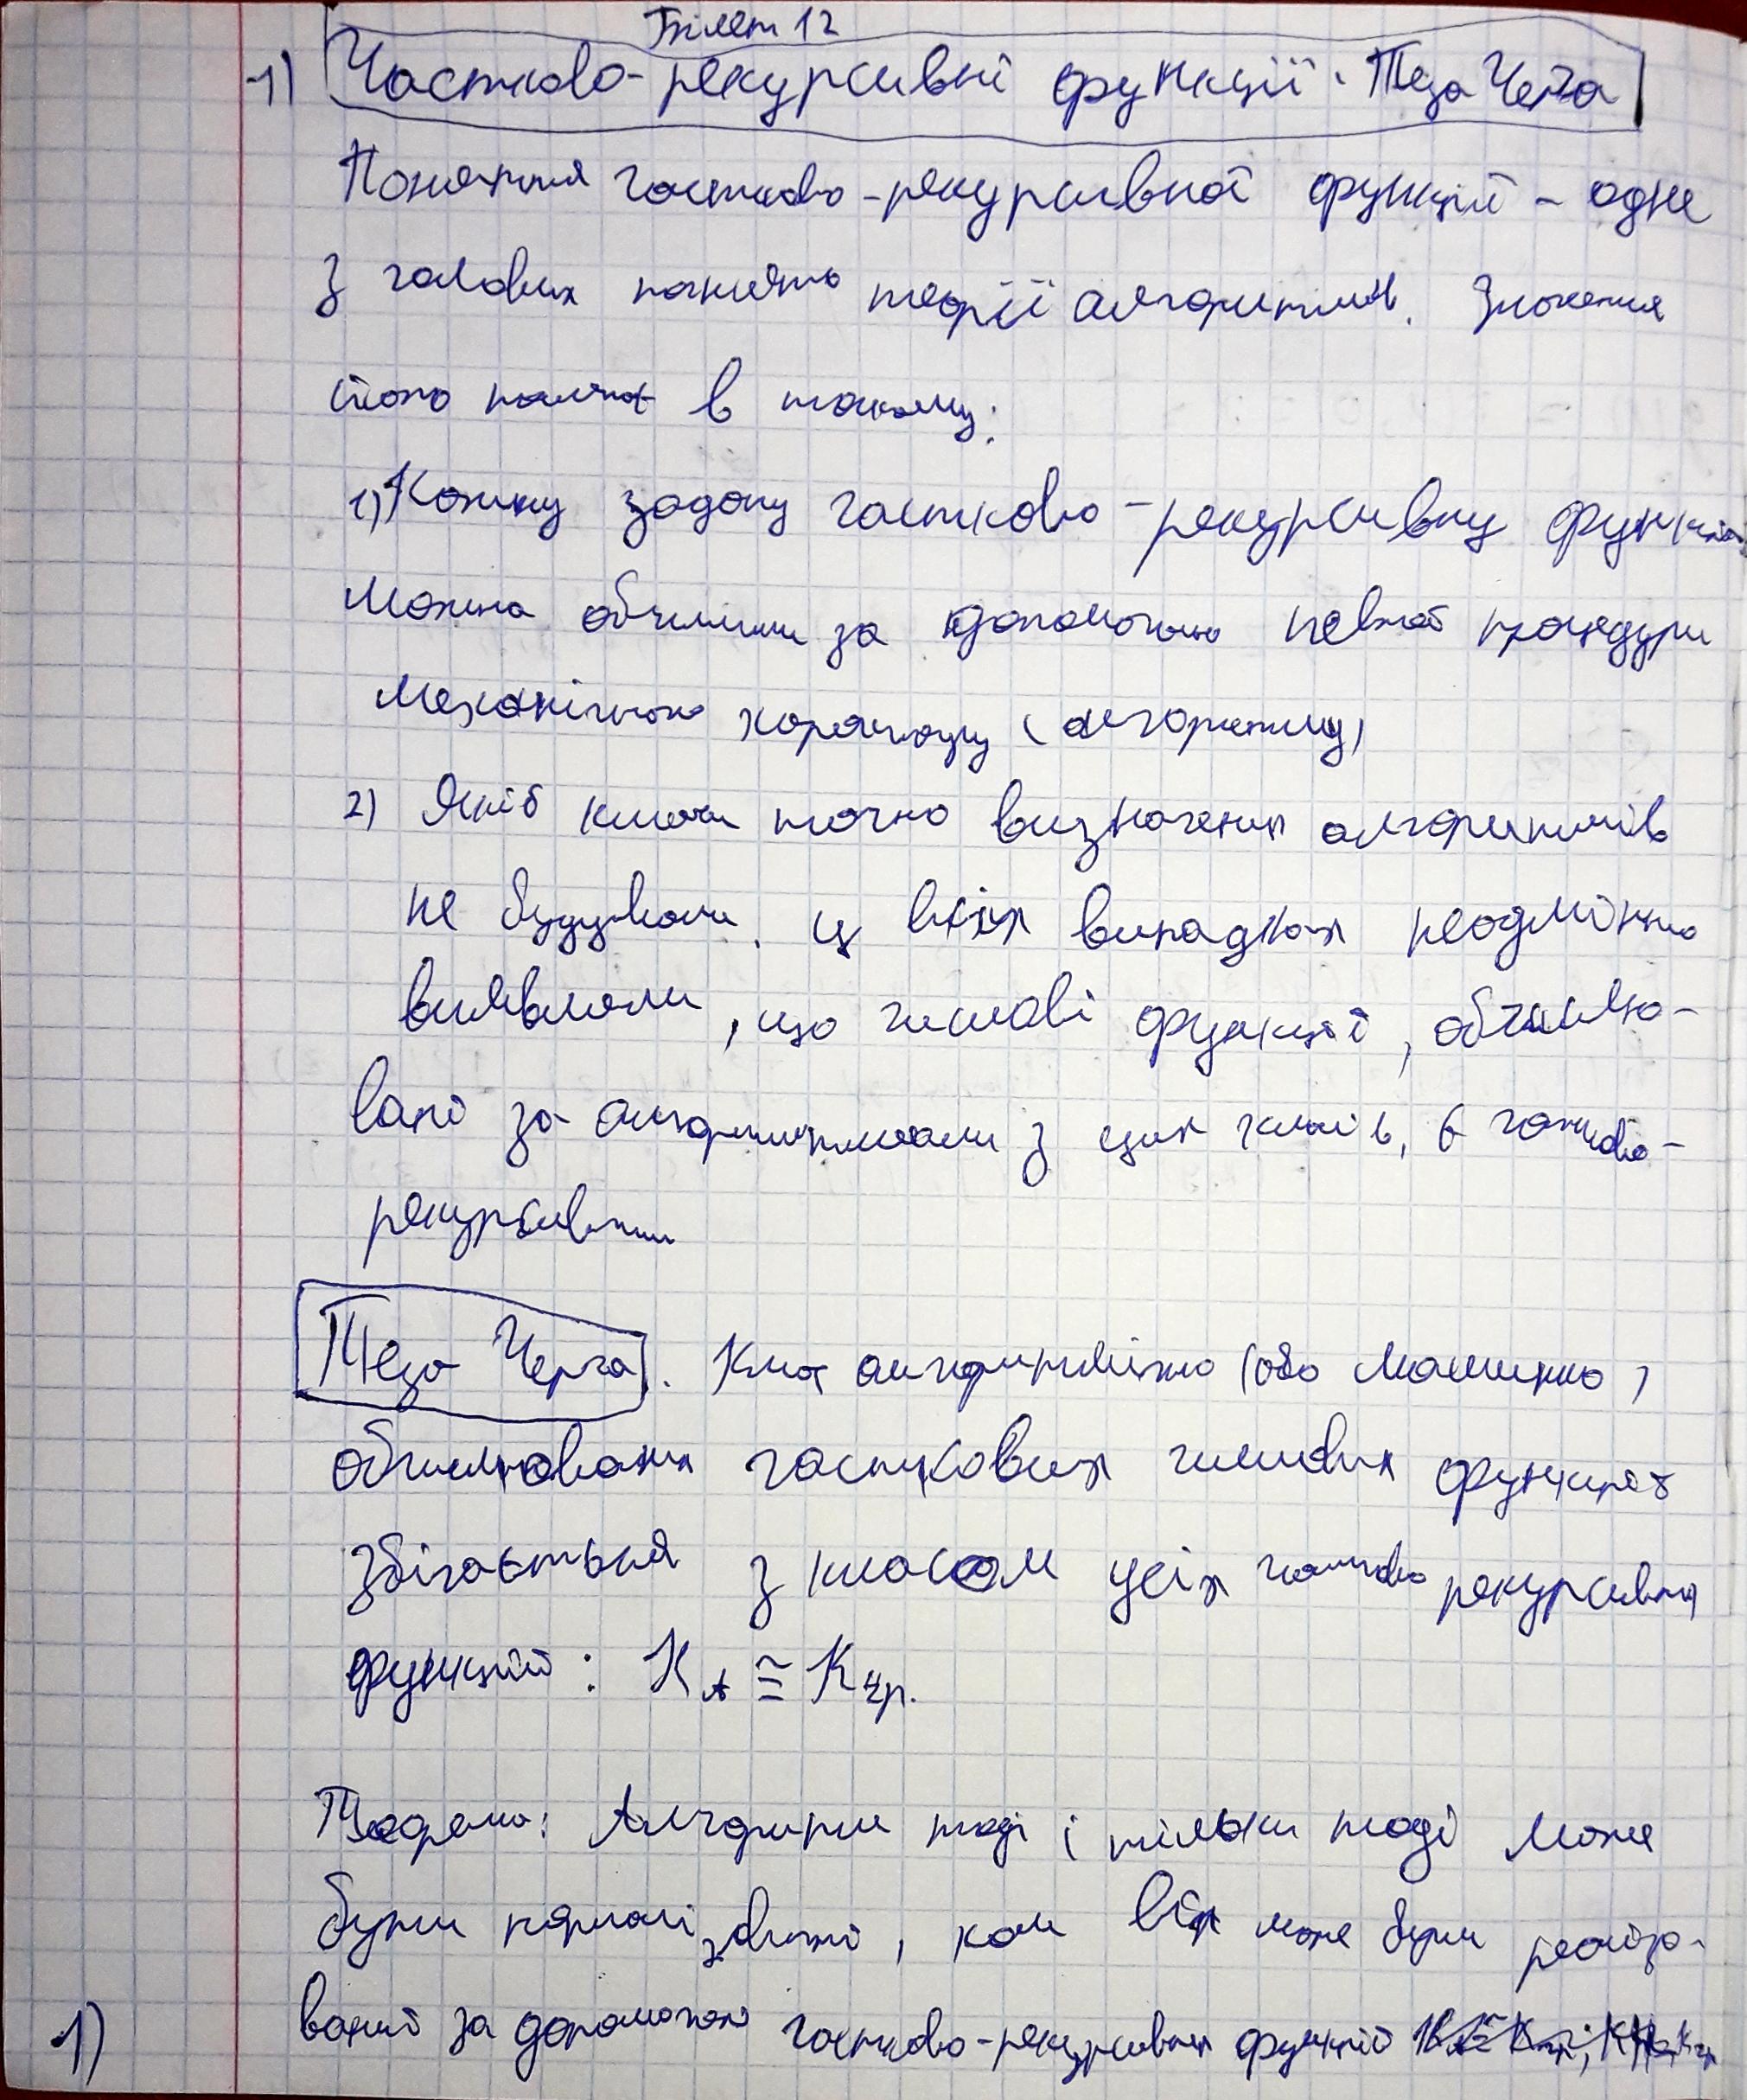 Білет 12
1) Частково-рекурсивні функції. Теза Черча
Поняття частково-рекурсивної функції - одне
з головних понять теорії алгоритмів. Значення
його полягає в такому:
1) Кожну задану частково-рекурсивну функцію
можна обчислити за допомогою певної процедури
механічного характеру (алгоритму)
2) Які б класи точно визначених алгоритмів
не будували, у всіх випадках неодмінно
виявляли, що числові функції, обчислю-
вані за алгоритмами з цих класів, є частково-
рекурсивними
Теза Черча. Клас алгоритмічно (або машинно)
обчислюваних часткових числових функцій
збігається з класом усіх частково рекурсивних
функцій: K_A ≅ K_чр.
Теорема: Алгоритм тоді і тільки тоді може
бути нормалізований, коли він може бути реалізо-
ваний за допомогою частково-рекурсивних функцій
1)